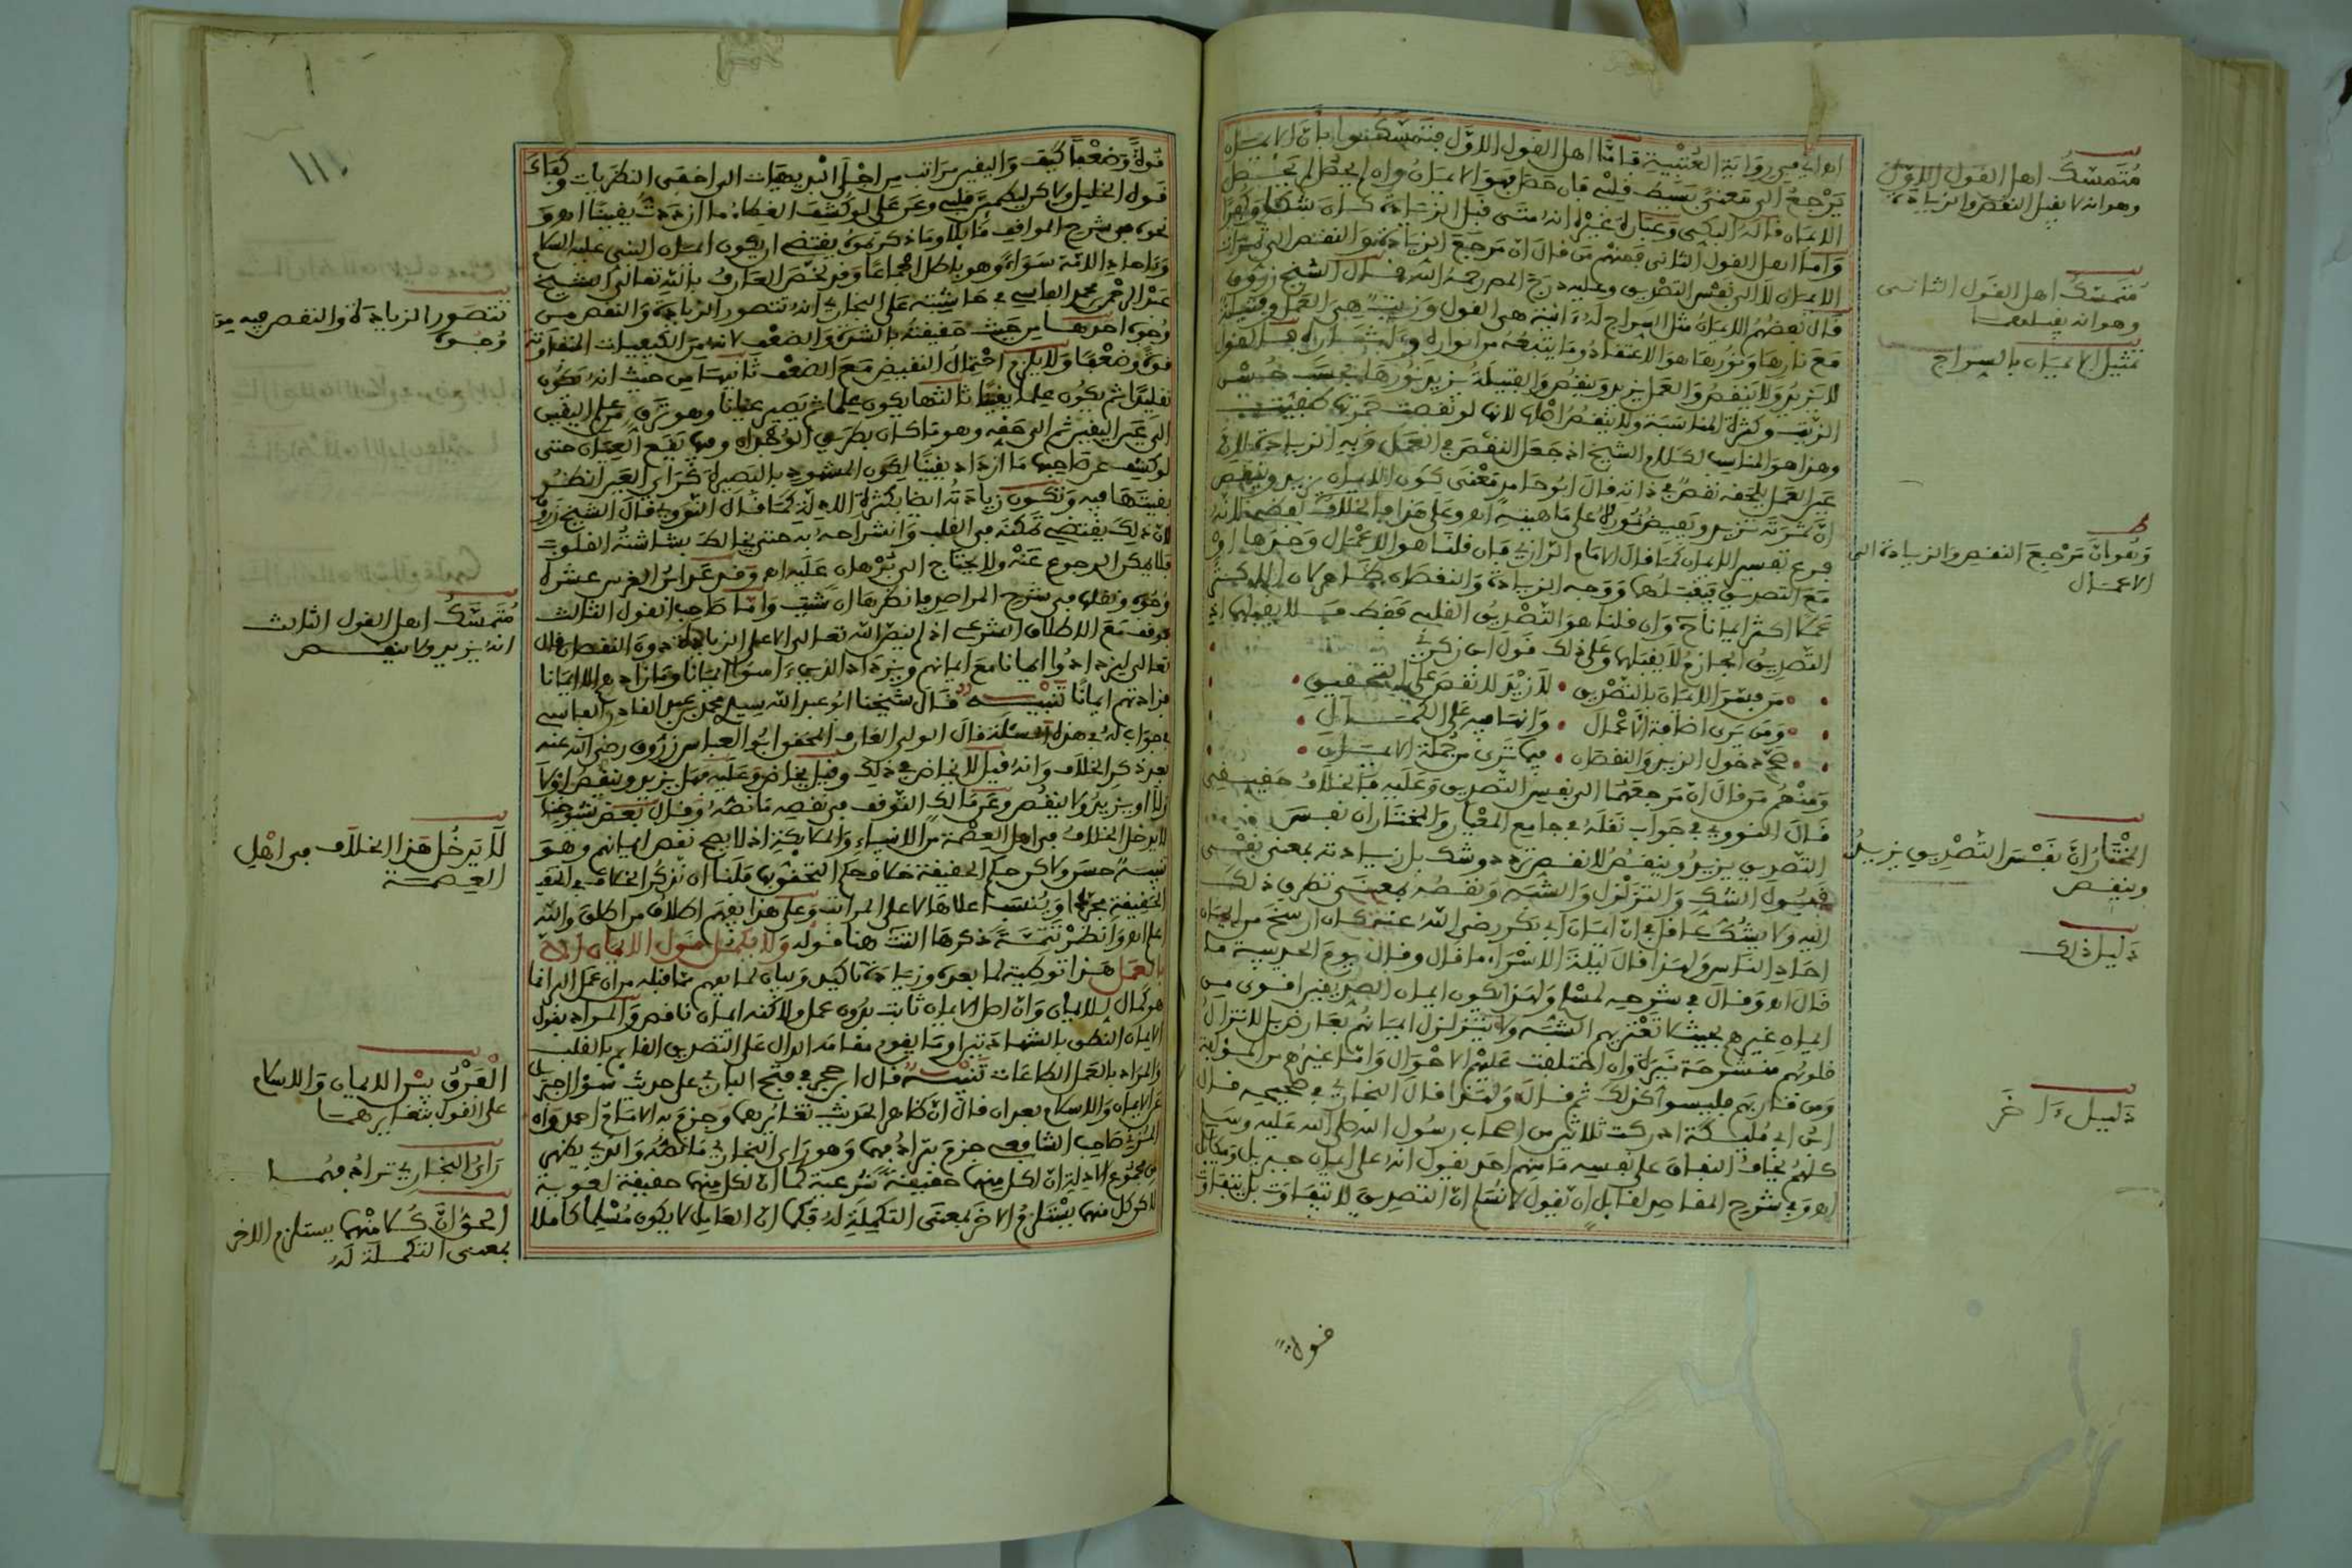 اهـ اي من رواية العتبية فاما اهل القول الاول فتمسكوا بان الايمان
يرجع الى معنى بسيط قلبي فان حصل فهو الايمان وان لم يحصل لم يحصل
الايمان قاله البكي وعبارة غيره انه متى قبل الزيادة كان شكا وكفرا
واما اهل القول الثاني فمنهم من قال ان مرجع الزيادة والنقص الى ثمرات
الايمان لا الى نفس التصديق وعليه درج المص رحمه الله قال الشيخ زروق
قال بعضهم الايمان مثل السراج له ذاتية هي القول وزيت هي العمل وفتيلة
مع نارها ونورها هو الاعتقاد وما يتبعه من انواره
لا يزيد ولا ينقص والعمل يزيد وينقص والفتيلة يزيد نورها بحسب حسن
الزيت وكثرة المناسبة ولا ينقص اصلها لانها لو نقصت خمرتها طفيت
وهذا هو المناسب لكلام الشيخ اذ جعل النقص في العمل وبه الزيادة
غير العمل يلحقه نقص في ذاته قال ابو حامد معنى كون الايمان يزيد وينقص
ان ثمرته تزيد ويفيض نوره على ما هيته اهـ وعلى هذا فالخلاف لفظي لانه
فرع تفسير الايمان كما قال الامام الرازي فان قلنا هو الاعمال وحدها او
مع التصديق فيقبلها ووجه الزيادة والنقصان ظاهر لان
عملا اكثر ايمانا وان قلنا هو التصديق القلبي فقط فلا يقبلها اي
التصديق الجازم لا يقبلها وعلى ذلك قول ابن زكري
من فسر الايمان بالتصديق • لا زيد لا نقص على التحقيق
ومن يرى اضافة الاعمال • وانها فيه على الكمال
صح دخول الزيد والنقصان • فيما ترى من جملة الايمان
ومنهم من قال ان مرجعهما الى نفس التصديق وعليه فالخلاف حقيقي
قال النووي في جواب نقله في جامع المعيار والمختار ان نفس
التصديق يزيد وينقص لا نقص تردد وشك بل زيادته بمعنى نفي
قبول الشك والتزلزل والشبه ونقصه بمعنى تطرق ذلك
اليه ولا يشك عاقل في ان ايمان ابي بكر رضي الله عنه كان ارسخ من ايمان
احاد الناس ولهذا قال ليلة الاسراء ما قال وقال يوم الحديبية ما
قال اهـ وقال في شرحه لمسلم ولهذا يكون ايمان الصديقين اقوى من
ايمان غيرهم بحيث لا تعتريهم الشبه ولا يتزلزل ايمانهم بعارض بل لا تزال
قلوبهم منشرحة نيرة وان اختلفت عليهم الاحوال واما غيرهم من المؤلفة
ومن قاربهم فليسوا كذلك ثم قال ولهذا قال البخاري في صحيحه قال
ابن ابي مليكة ادركت ثلاثين من اصحاب رسول الله صلى الله عليه وسلم
كلهم يخاف النفاق على نفسه ما منهم احد يقول انه على ايمان جبريل وميكائل
اهـ وفي شرح المقاصد لقائل ان يقول لا نسلم ان التصديق لا يتفاوت بل يتفاوت
قول
متمسك اهل القول الاول
وهو انه لا يقبل النقص والزيادة
متمسك اهل القول الثاني
وهو انه يقبلهما
تمثيل الايمان بالسراج
وهو ان مرجع النقص والزيادة الى
الاعمال
المختار ان نفس التصديق يزيد
وينقص
دليل ذلك
دليل ءاخر
111
قوة وضعفا كيف واليقين مراتب من اجلى البديهيات الى اخفى النظريات وكفاك
قول الخليل ولاكن ليطمئن قلبي وعن علي لو كشف الغطاء ما ازددت يقينا اهـ و
نحوه في شرح المواقف قائلا وما ذكرتموه يقتضي ان يكون ايمان النبي عليه السلام
وءاحاد الامة سواء وهو باطل اجماعا وقد لخص العارف بالله تعالى الشيخ
عبد الرحمن بن محمد الفاسي في حاشيته على البخاري انه تتصور الزيادة والنقص من
وجوه احدها من حيث حقيقته بالشدة والضعف لانه من الكيفيات المتفاوتة
قوة وضعفا ولا يلزم احتمال النقيض مع الضعف ثانيها من حيث انه يكون
تقليدا ثم يكون علما يقينا ثالثها يكون علما ثم يصير عيانا وهو ترق من علم اليقين
الى عين اليقين ثم الى حقه وهو ما كان بطريق الوجدان وفيها يقع العيان حتى
لو كشف عن صاحبها ما ازداد يقينا لكون المشهود بالبصيرة كراي العين انظر
بقيتها فيه وتكون زيادته ايضا بكثرة الادلة كما قال النووي قال الشيخ زروق
لان ذلك يقتضي تمكنه من القلب وانشراحه به حتى يخالط بشاشته القلوب
فلا يمكن الرجوع عنه ولا يحتاج الى برهان عليه اهـ وقد عد ابن العربي عشرة
وجوه ونقلها في شرح المراصد فانظرها ان شئت واما صاحب القول الثالث
فوقف مع الاطلاق الشرعي اذ لم ينص الله تعالى الا على الزيادة دون النقص قال
تعالى ليزدادوا ايمانا مع ايمانهم ويزداد الذين ءامنوا ايمانا وما زادهم الا ايمانا
فزادتهم ايمانا تنبيه قال شيخنا ابو عبد الله سيدي محمد بن عبد القادر الفاسي
في جواب له في هذه المسئلة قال الولي العارف المحقق ابو العباس زروق رضي الله عنه
بعد ذكر الخلاف وانه قيل لا يخاض في ذلك وقيل يخاض وعليه فهل يزيد وينقص او لا
ولا او يزيد ولا ينقص وعن مالك التوقف في نقصه ما نصه وقال بعض شيوخنا
لا يدخل الخلاف في اهل العصمة من الانبياء والملائكة اذ لا يصح نقص ايمانهم وهو
تنبيه حسن ولاكن حكم الحقيقة خلاف حكم التحقق بها فلنا ان نذكر الخلاف في
الحقيقة مجردا وينسب اعلاها لاعلى المراتب وعلى هذا يفهم اطلاق من اطلق والله
اعلم اهـ وانظر تتمة ذكرها التت هنا قوله ولا يكمل قول الايمان الا
بالعمل هذا توطئة لما بعده وزيادة تاكيد وبيان لما يفهم مما قبله من ان عمل البر انما
هو كمال للايمان وان اصل الايمان ثابت بدون عمل ولاكنه ايمان ناقص والمراد بقول
الايمان النطق بالشهادتين او ما يقوم مقامه الدال على التصديق القائم بالقلب
والمراد بالعمل الطاعات تنبيه قال ابن حجر في فتح الباري على حديث سؤال جبريل
عن الايمان والاسلام بعد ان قال ان ظاهر الحديث تغايرهما وجزم به الامام احمد وان
المزني صاحب الشافعي جزم بترادفهما وهو راي البخاري ما نصه والذي يظهر
من مجموع الادلة ان لكل منهما حقيقة شرعية كما ان لكل منهما حقيقة لغوية
لاكن كل منهما يستلزم الاخر بمعنى التكملة له فكما ان العامل لا يكون مسلما كاملا
تتصور الزيادة والنقص فيه من
وجوه
متمسك اهل القول الثالث
انه يزيد ولا ينقص
لا يدخل هذا الخلاف في اهل
العصمة
الفرق بين الايمان والاسلام
على القول بتغايرهما
راي البخاري ترادفهما
الحق ان كلا منهما يستلزم الاخر
بمعنى التكملة له